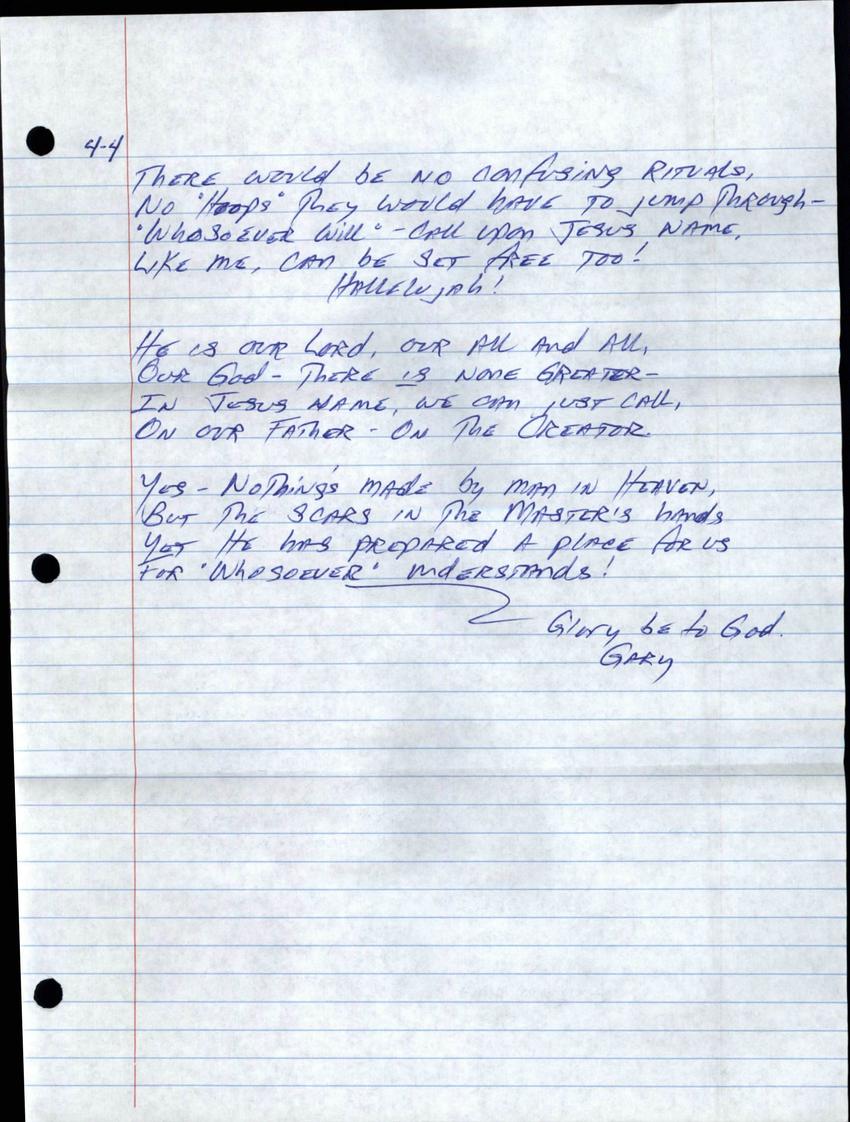 4-4
THERE WOULD BE NO CONFUSING RITUALS,
NO "HOOPS" THEY WOULD HAVE TO JUMP THROUGH-
"WHOSOEVER WILL" - CALL UPON JESUS NAME,
LIKE ME, CAN BE SET FREE TOO!
HALLELUJAH!
HE IS OUR LORD, OUR ALL AND ALL,
OUR GOD - THERE IS NONE GREATER-
IN JESUS NAME, WE CAN JUST CALL,
ON OUR FATHER - ON THE CREATOR.
YES - NOTHING'S MADE BY MAN IN HEAVEN,
BUT THE SCARS IN THE MASTER'S HANDS
YET HE HAS PREPARED A PLACE FOR US
FOR "WHOSOEVER" UNDERSTANDS!
Glory be to God.
GARY